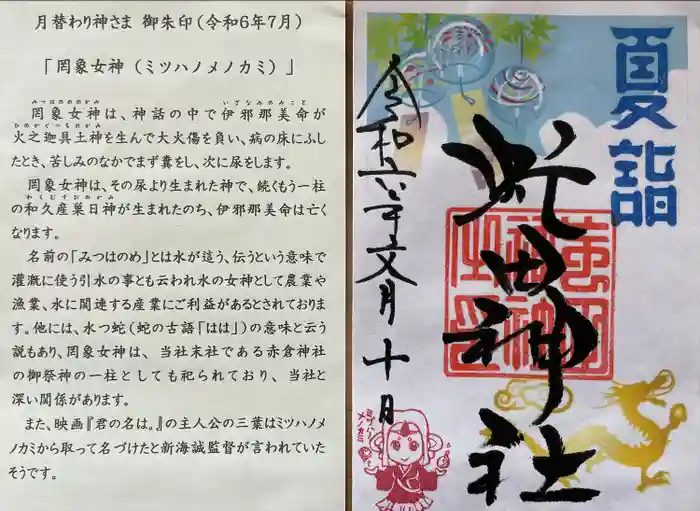 月替わり神さま 御朱印(令和6年7月)
「罔象女神（ミツハノメノカミ）」
みつはのめのかみ いざなみのみこと
罔象女神は、神話の中で伊邪那美命が
ひのかぐつちのかみ
火之迦具土神を生んで大火傷を負い、病の床にふし
たとき、苦しみのなかでまず糞をし、次に尿をします。
罔象女神は、その尿より生まれた神で、続くもう一柱
わくむすびのかみ
の和久産巣日神が生まれたのち、伊邪那美命は亡く
なります。
名前の「みつはのめ」とは水が這う、伝うという意味で
灌漑に使う引水の事とも云われ水の女神として農業や
漁業、水に関連する産業にご利益があるとされておりま
す。他には、水つ蛇(蛇の古語「はは」)の意味と云う
説もあり、罔象女神は、当社末社である赤倉神社
の御祭神の一柱としても祀られており、当社と
深い関係があります。
また、映画『君の名は。』の主人公の三葉はミツハノメ
ノカミから取って名づけたと新海誠監督が言われていた
そうです。
夏詣
蛇田神社
令和六年文月十日
ミツハノ
メノカミ